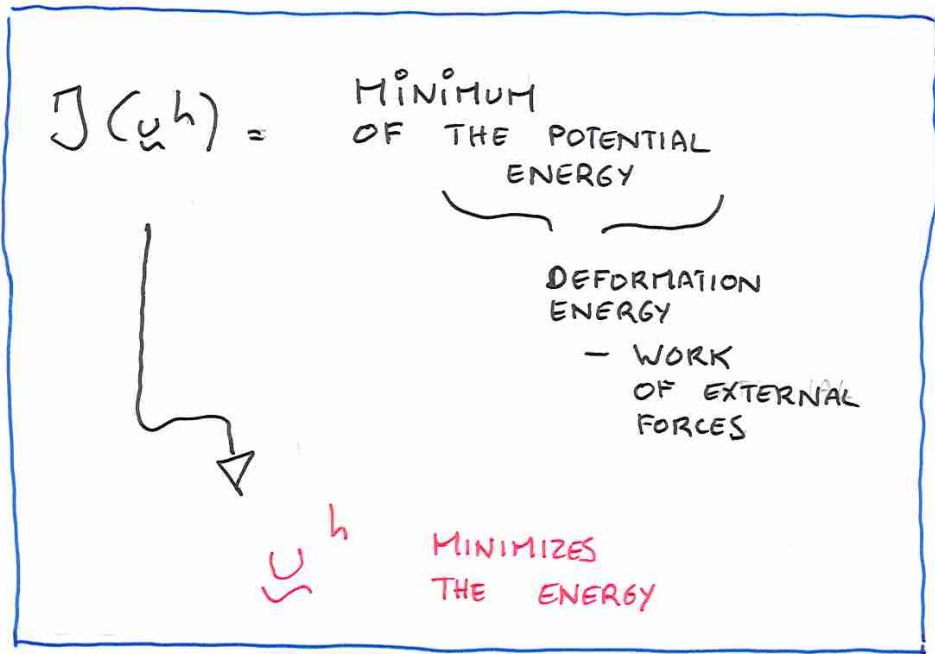 J(u^h) = MINIMUM
OF THE POTENTIAL
ENERGY
DEFORMATION
ENERGY
- WORK
OF EXTERNAL
FORCES
u^h MINIMIZES
THE ENERGY